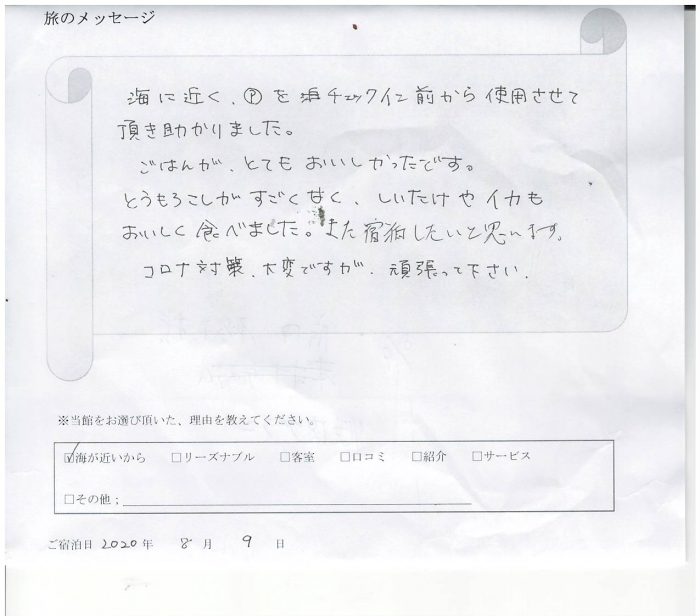 旅のメッセージ
海に近く、Ⓟを チェックイン前から使用させて
頂き助かりました。
ごはんが、とてもおいしかったです。
とうもろこしがすごく甘く、しいたけやイカも
おいしく食べました。また宿泊したいと思います。
コロナ対策、大変ですが、頑張って下さい。
※当館をお選び頂いた、理由を教えてください。
☑海が近いから □リーズナブル □客室 □口コミ □紹介 □サービス
□その他；
ご宿泊日 2020 年 8 月 9 日